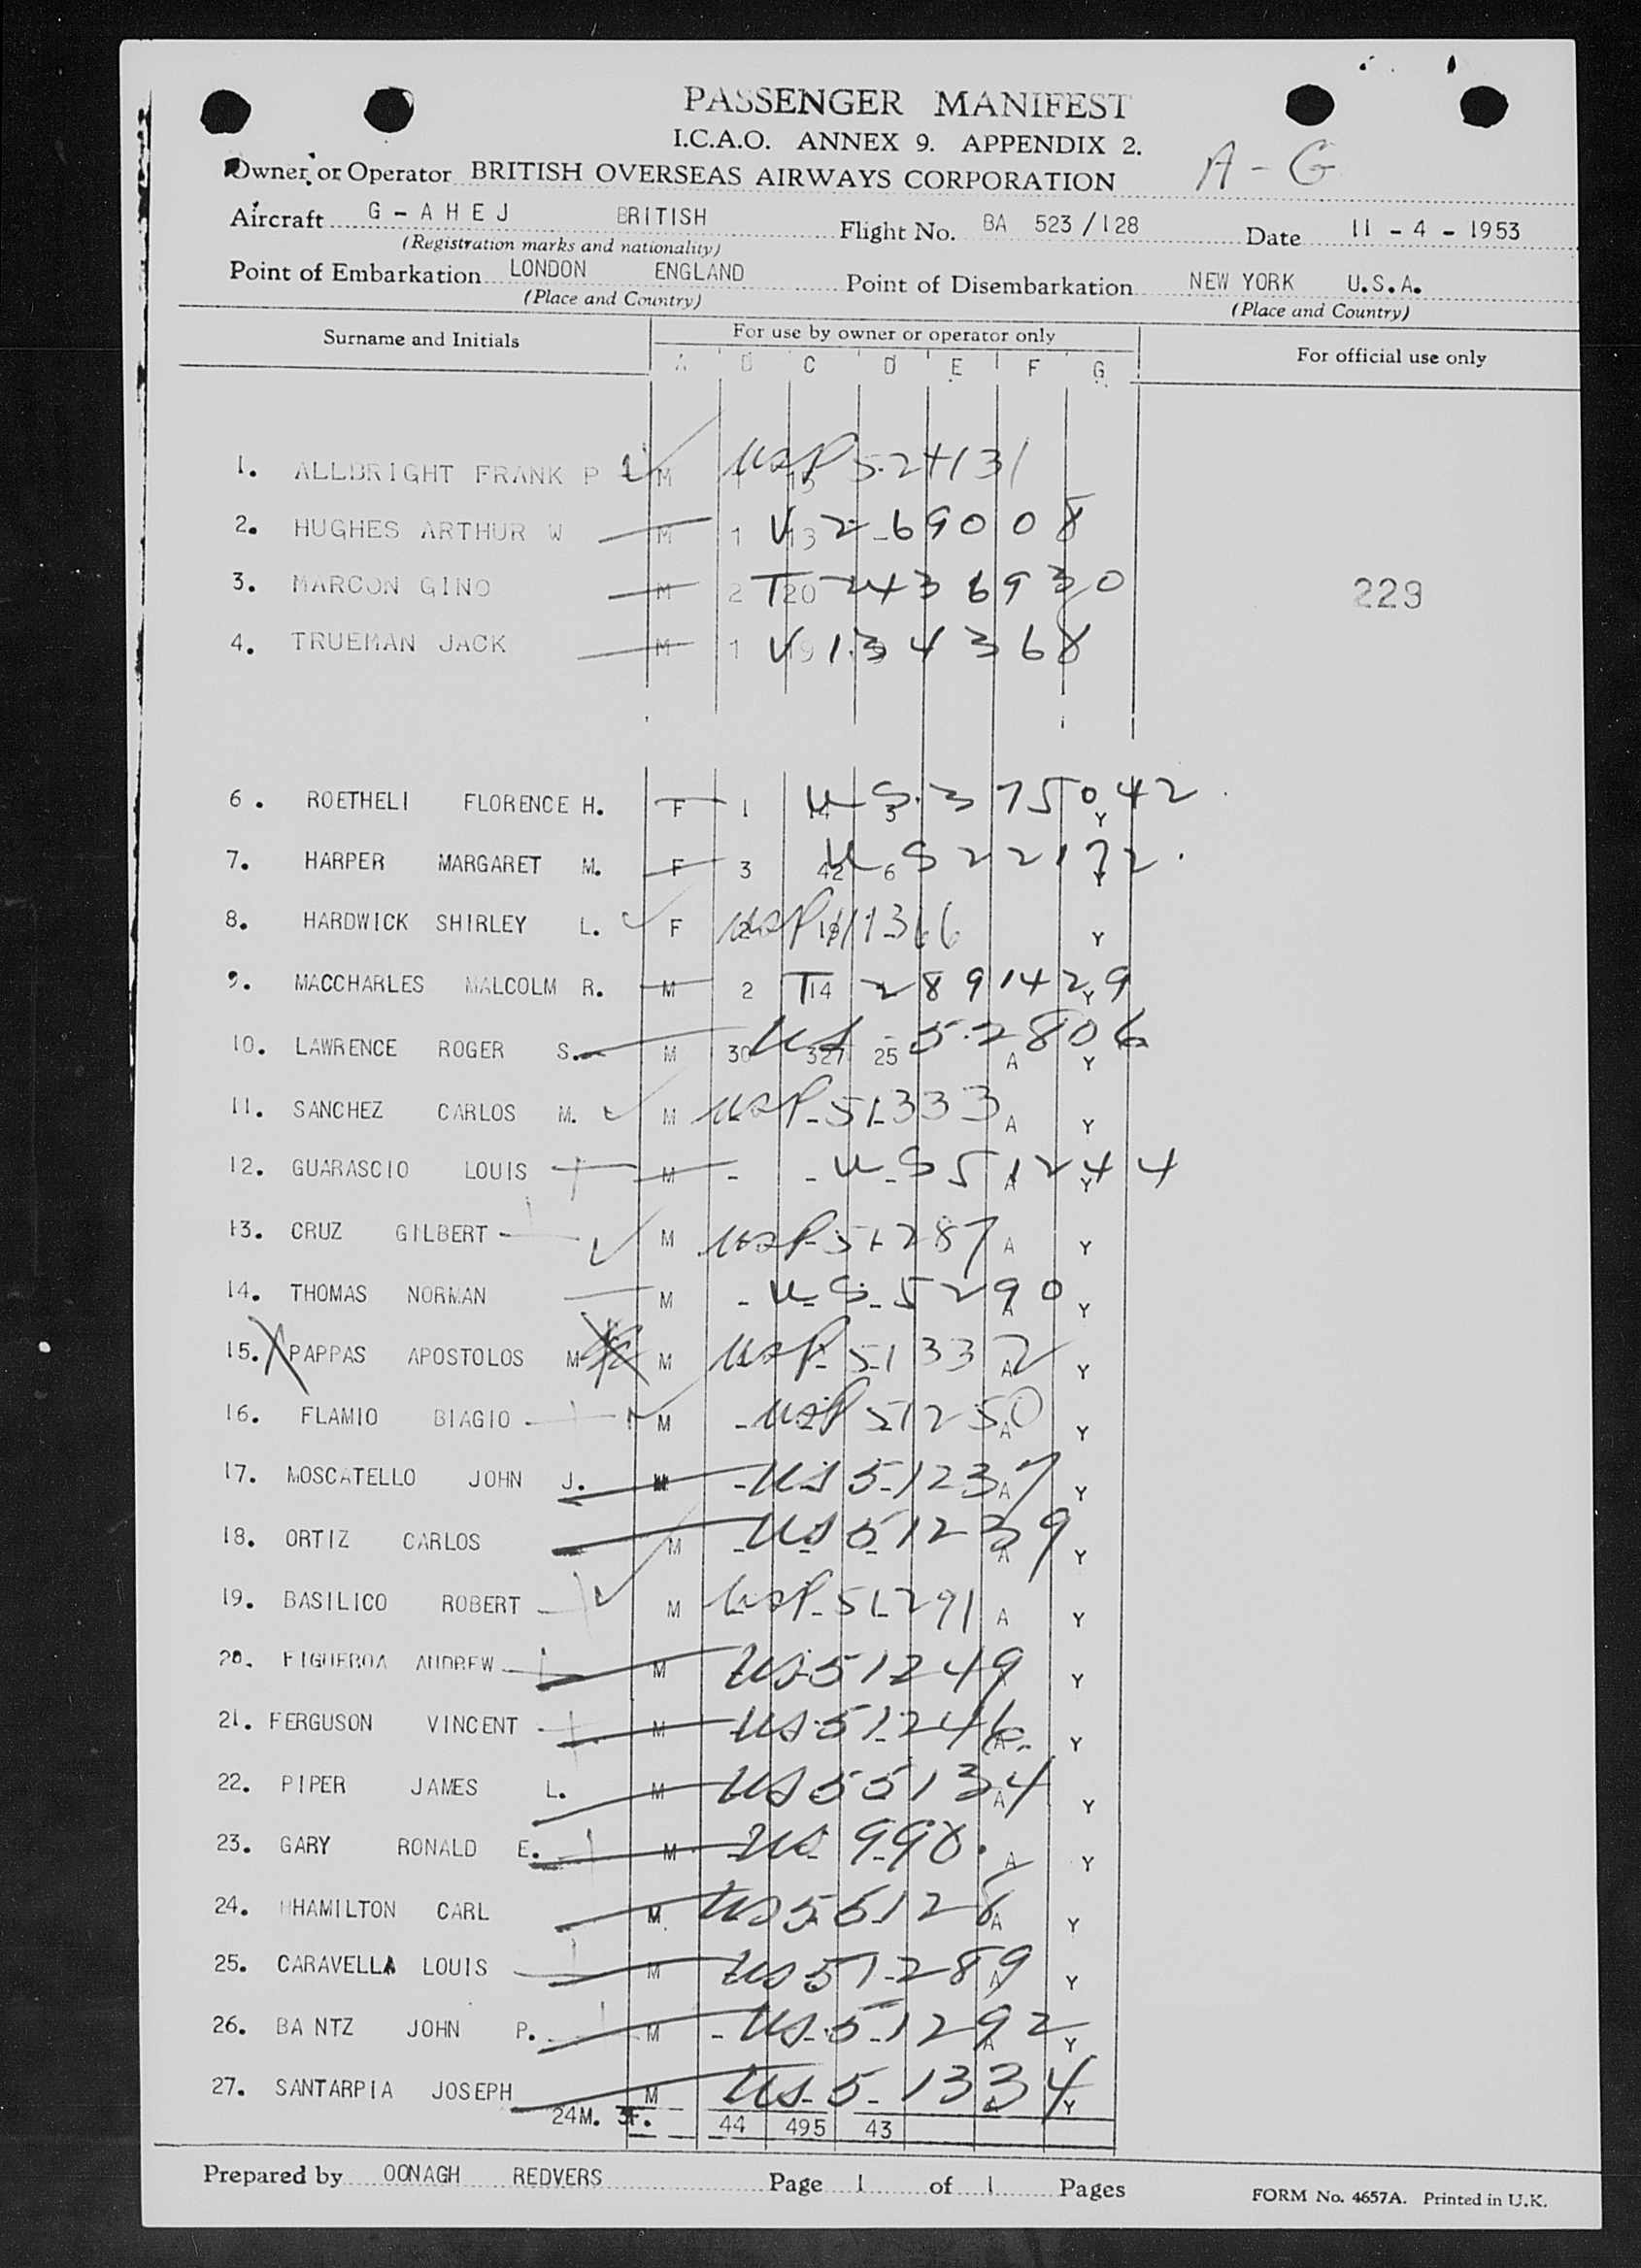 PASSENGER MANIFEST
I.C.A.O. ANNEX 9. APPENDIX 2.
A - G
Owner or Operator BRITISH OVERSEAS AIRWAYS CORPORATION
Aircraft G - A H E J BRITISH Flight No. BA 523 / 128 Date 11 - 4 - 1953
(Registration marks and nationality)
Point of Embarkation LONDON ENGLAND Point of Disembarkation NEW YORK U.S.A.
(Place and Country) (Place and Country)
Surname and Initials For use by owner or operator only For official use only
A B C D E F G
1. ALLBRIGHT FRANK P M 1 15 USP 524131
2. HUGHES ARTHUR W M 1 13 - V 2 69008
3. MARCON GINO M 2 20 T 2436930 229
4. TRUEMAN JACK M 1 19 V 134368
6. ROETHELI FLORENCE H. F 1 14 3 US 375042 Y
7. HARPER MARGARET M. F 3 42 6 US 22172 Y
8. HARDWICK SHIRLEY L. F 2 18 USP 11366 Y
9. MACCHARLES MALCOLM R. M 2 14 T 2891429 Y
10. LAWRENCE ROGER S. M 30 327 25 US 52806 A Y
11. SANCHEZ CARLOS M. M USP 51333 A Y
12. GUARASCIO LOUIS M - - - US 51244 A Y
13. CRUZ GILBERT M USP 51287 A Y
14. THOMAS NORMAN M - - - US 5290 A Y
15. PAPPAS APOSTOLOS M M USP 51332 A Y
16. FLAMIO BIAGIO M - USP 51250 A Y
17. MOSCATELLO JOHN J. M - US 51237 A Y
18. ORTIZ CARLOS M - - - US 51239 A Y
19. BASILICO ROBERT M USP 51291 A Y
20. FIGUEROA ANDREW M US 51249 Y
21. FERGUSON VINCENT M US 51246 A Y
22. PIPER JAMES L. M US 55134 A Y
23. GARY RONALD E. M US 998 A Y
24. HHAMILTON CARL M US 55128 A Y
25. CARAVELLA LOUIS M US 51289 A Y
26. BA NTZ JOHN P. M - - - US 51292 A Y
27. SANTARPIA JOSEPH M US 51334 Y
24M. 3F. 44 495 43
Prepared by OONAGH REDVERS Page 1 of 1 Pages FORM No. 4657A. Printed in U.K.